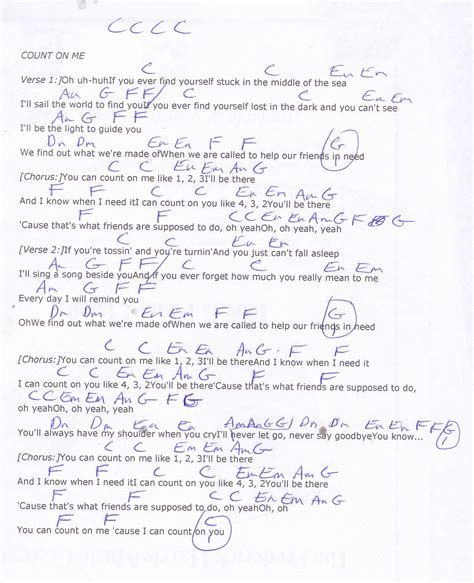 C C C C
COUNT ON ME
C C Em Em
Verse 1:]Oh uh-huhIf you ever find yourself stuck in the middle of the sea
Am G F F / C C Em Em
I'll sail the world to find youIf you ever find yourself lost in the dark and you can't see
Am G F F
I'll be the light to guide you
Dm Dm Em Em F F G
We find out what we're made ofWhen we are called to help our friends in need
C C Em Em Am G
[Chorus:]You can count on me like 1, 2, 3I'll be there
F F C C Em Em Am G
And I know when I need itI can count on you like 4, 3, 2You'll be there
F F C C Em Em Am G F G
'Cause that's what friends are supposed to do, oh yeahOh, oh yeah, yeah
C C Em Em
[Verse 2:]If you're tossin' and you're turnin'And you just can't fall asleep
Am G F F / C C Em Em
I'll sing a song beside youAnd if you ever forget how much you really mean to me
Am G F F
Every day I will remind you
Dm Dm Em Em F F G
OhWe find out what we're made ofWhen we are called to help our friends in need
C C Em Em Am G F F
[Chorus:]You can count on me like 1, 2, 3I'll be thereAnd I know when I need it
C C Em Em Am G F F
I can count on you like 4, 3, 2You'll be there'Cause that's what friends are supposed to do,
C C Em Em Am G F G
oh yeahOh, oh yeah, yeah
Dm Dm Em Em Am Am G G / Dm Dm Em Em F F G
You'll always have my shoulder when you cryI'll never let go, never say goodbyeYou know...
C C Em Em Am G
[Chorus:]You can count on me like 1, 2, 3I'll be there
F F C C Em Em Am G
And I know when I need itI can count on you like 4, 3, 2You'll be there
F F C C Em Em Am G
'Cause that's what friends are supposed to do, oh yeahOh, oh
F F C
You can count on me 'cause I can count on you